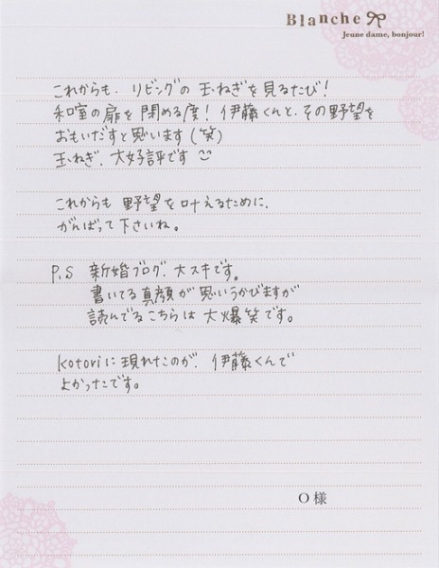 Blanche
Jeune dame, bonjour!
これからも、リビングの 玉ねぎを見るたび!
和室の扉を閉める度! 伊藤くんと、その野望を
おもいだすと思います(笑)
玉ねぎ、大好評です
これからも 野望を叶えるために、
がんばって下さいね。
P.S 新婚ブログ、大スキです。
書いてる真顔が思いうかびますが
読んでるこちらは 大爆笑です。
kotoriに現れたのが、伊藤くんで
よかったです。
O様